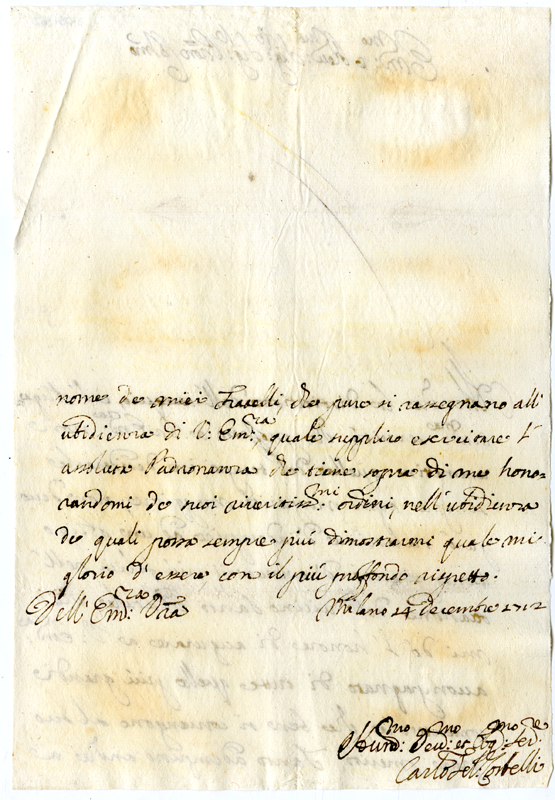 nome de miei Fratelli, che pure si rassegnano all'
ubidienza di V: Em:za, quale supplico esercitare l'
assoluta Padronanza che tiene sopra di me hono=
randomi de suoi riveritiss:mi ordini, nell'ubidienza
de quali possa sempre più dimostrarmi quale mi
glorio d'essere con il più proffondo rispetto.
Dell' Em:za Vra Milano 14 Decembre 1712
Hum:mo Dev:mo et Obg:mo Ser:re
Carlo